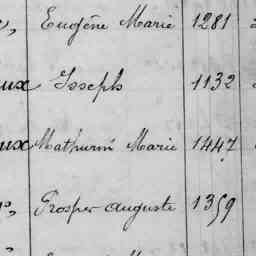 Eugène Marie 1281
ux Joseph 1132
ux Mathurin Marie 1447
Prosper Auguste 1359